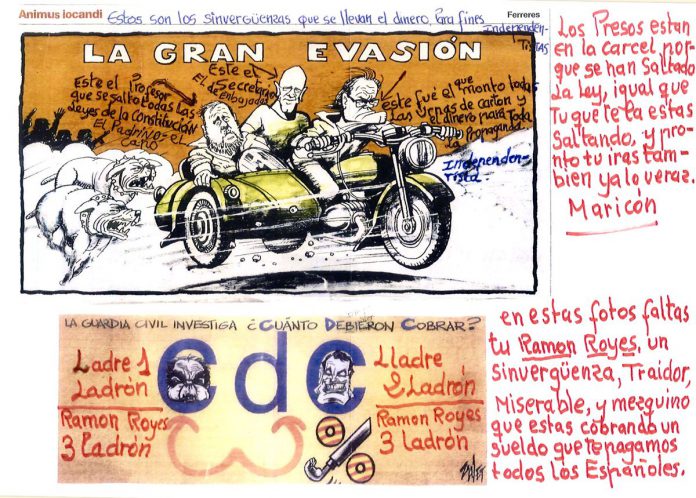 Animus locandi
Estos son los sinvergüenzas que se llevan el dinero, Para fines
Independen-
tistas
Ferreres
LA GRAN EVASIÓN
Este el Profesor
que se salto todas las
Leyes de la Constitución
El Padrino el
Capo
Este el
Secretario
El de
Embajadas
este fué el que
monto todas
las Urnas de carton y
el dinero para toda
la Propaganda
Independen-
tista
Los Presos estan
en la carcel por
que se han Saltado
la Ley, igual que
Tu que te la estas
Saltando, y pro-
nto tu iras tam-
bien ya lo veraz.
Maricón
LA GUARDIA CIVIL INVESTIGA ¿CUÁNTO DEBIERON COBRAR?
Ladre 1
Ladrón
Ramon Royes
3 Ladrón
cdc
Lladre
2 Ladrón
Ramon Royes
3 ladrón
en estas fotos faltas
tu Ramon Royes, un
sinvergüenza, Traidor,
Miserable, y mezquino
que estas cobrando un
sueldo que te pagamos
todos los Españoles.